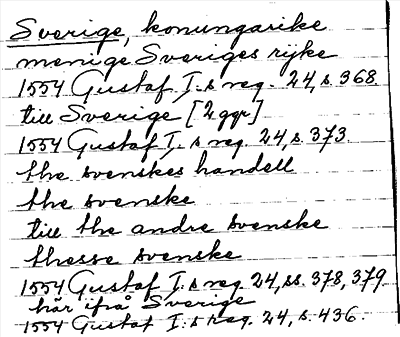 Sverige, konungarike
menige Sveriges rijke
1554 Gustaf I:s reg. 24, s. 368.
till Sverige [2 ggr]
1554 Gustaf I:s reg. 24, s. 373.
the svenskes handell
the svenske
till the andre svenske
thesse svenske
1554 Gustaf I:s reg. 24, ss. 378, 379.
här ifrå Sverige
1554 Gustaf I:s reg. 24, s. 436.